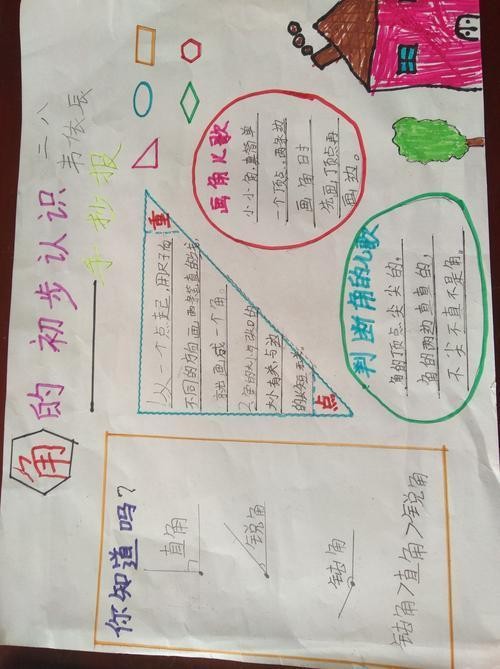 角的初步认识
二、八
韦依辰
手抄报
你知道吗?
直角
锐角
钝角
钝角>直角>锐角
重
点
1从一个点起,用尺子向
不同的方向画两条笔直的线,
就画成一个角。
2角的大小与
大小有关,与边
的长短无关。
画角儿歌
小小角,真简单
一个顶点,两条边
画角时
先画顶点再
画边。
判断角的儿歌
角的顶点尖尖的,
角的两边直直的,
不尖不直不是角。